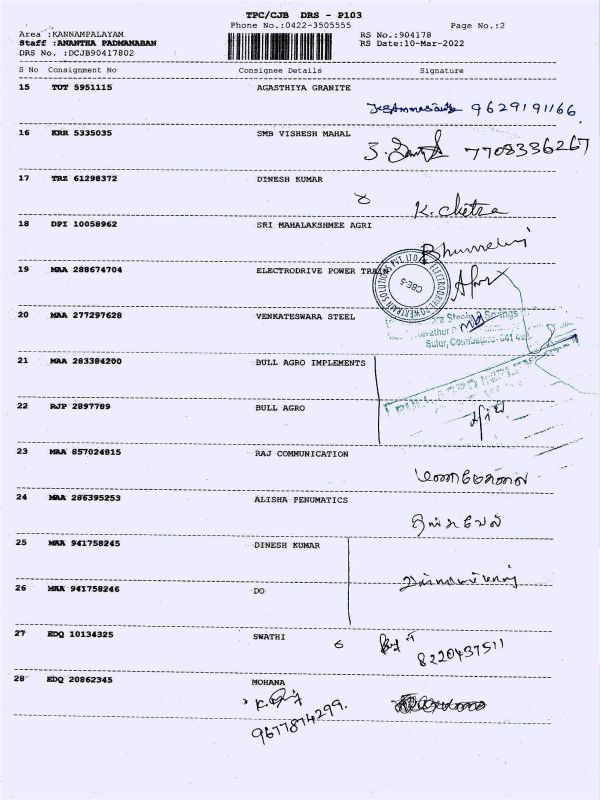 TPC/CJB DRS - P103
Phone No.:0422-3505555 Page No.:2
Area :KANNAMPALAYAM RS No.:904178
Staff :ANANTHA PADMANABAN RS Date:10-Mar-2022
DRS No. :DCJB90417802
S No Consignment No Consignee Details Signature
15 TUT 5951115 AGASTHIYA GRANITE
9629191166
16 KRR 5335035 SMB VISHESH MAHAL
7708336267
17 TRZ 61298372 DINESH KUMAR
K. Chitra
18 DPI 10058962 SRI MAHALAKSHMEE AGRI
19 MAA 288674704 ELECTRODRIVE POWER TRAIN
CBE-5
20 MAA 277297628 VENKATESWARA STEEL
Sulur, Coimbatore- 641
21 MAA 283384200 BULL AGRO IMPLEMENTS
22 RJP 2897789 BULL AGRO
23 MAA 857024815 RAJ COMMUNICATION
24 MAA 286395253 ALISHA PENUMATICS
25 MAA 941758245 DINESH KUMAR
26 MAA 941758246 DO
27 EDQ 10134325 SWATHI
8220437511
28 EDQ 20862345 MOHANA
9677874299.